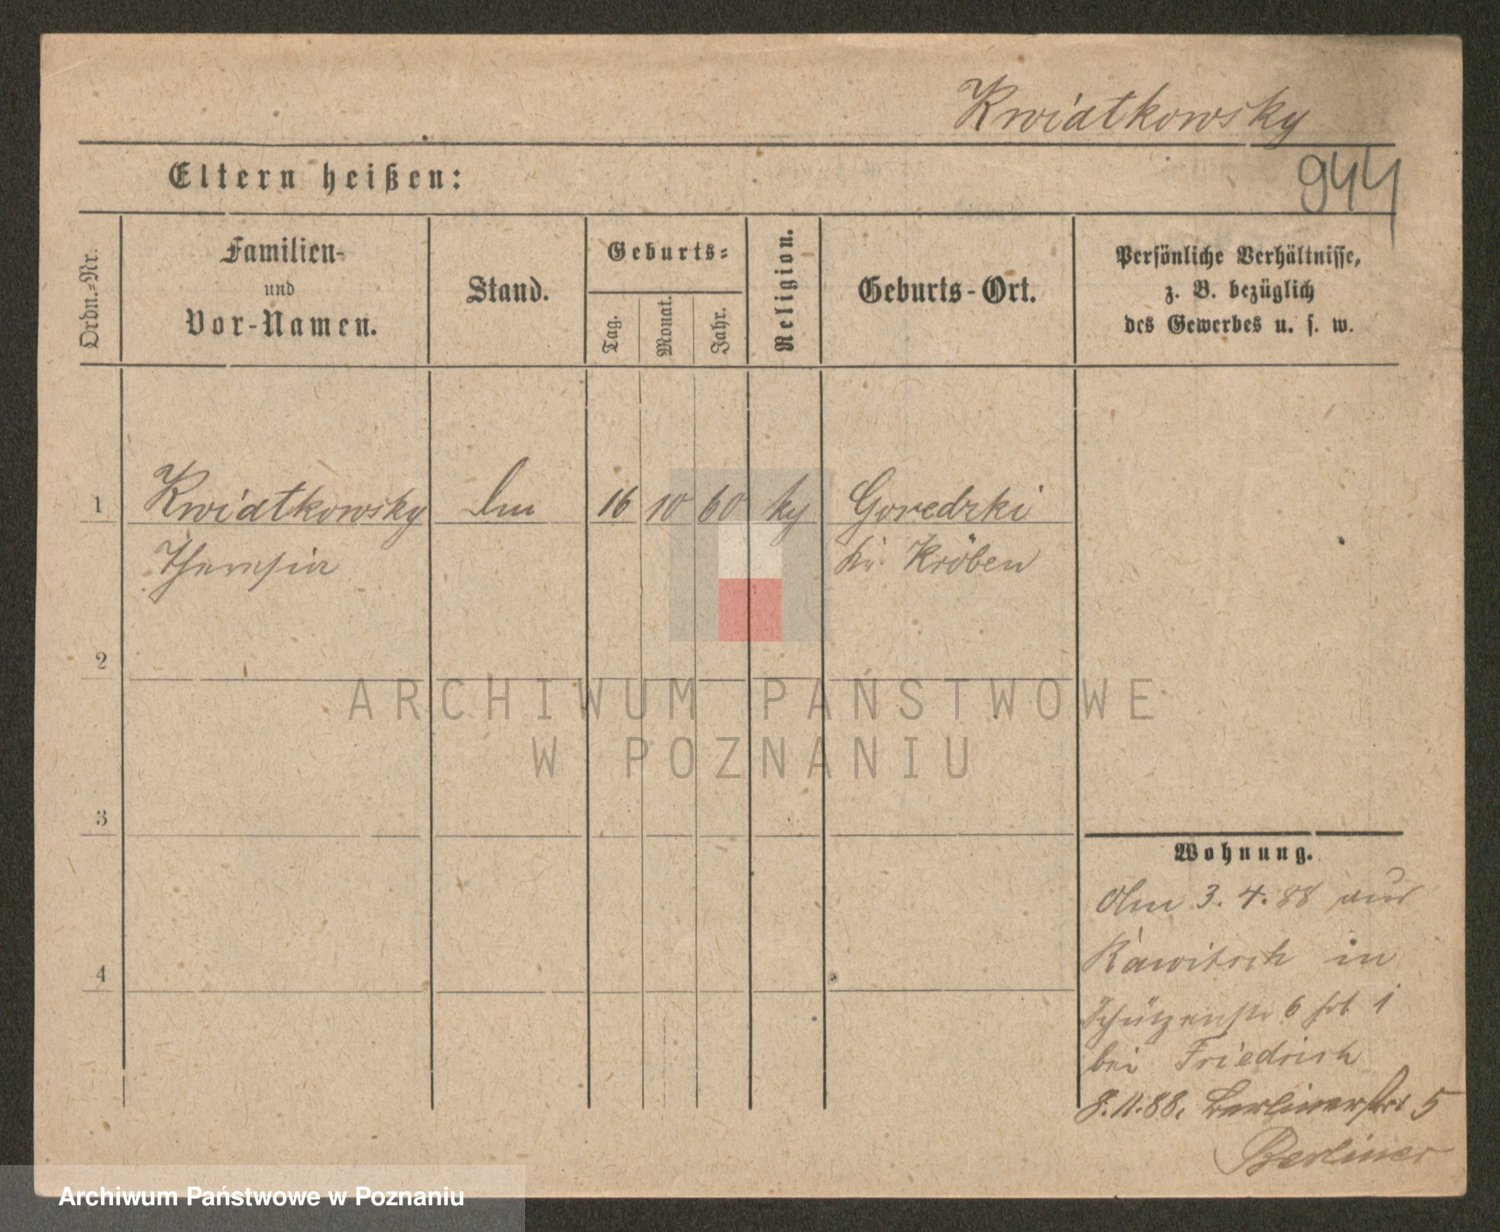 Kwiatkowsky
944
Eltern heißen:
Ordn.-Nr.
Familien-
und
Vor-Namen.
Stand.
Geburts-
Tag.
Monat.
Jahr.
Religion.
Geburts-Ort.
Persönliche Verhältnisse,
z. B. bezüglich
des Gewerbes u. s. w.
1 Kwiatkowsky 16 10 60 Goredzki
Theresia Kr. Kröben
2
3
4
ARCHIWUM PAŃSTWOWE
W POZNANIU
Wohnung.
3. 4. 88 aus
Rawitsch in
Schützenstr 6
bei Friedrich
8. 11. 88. 5
Berliner
Archiwum Państwowe w Poznaniu